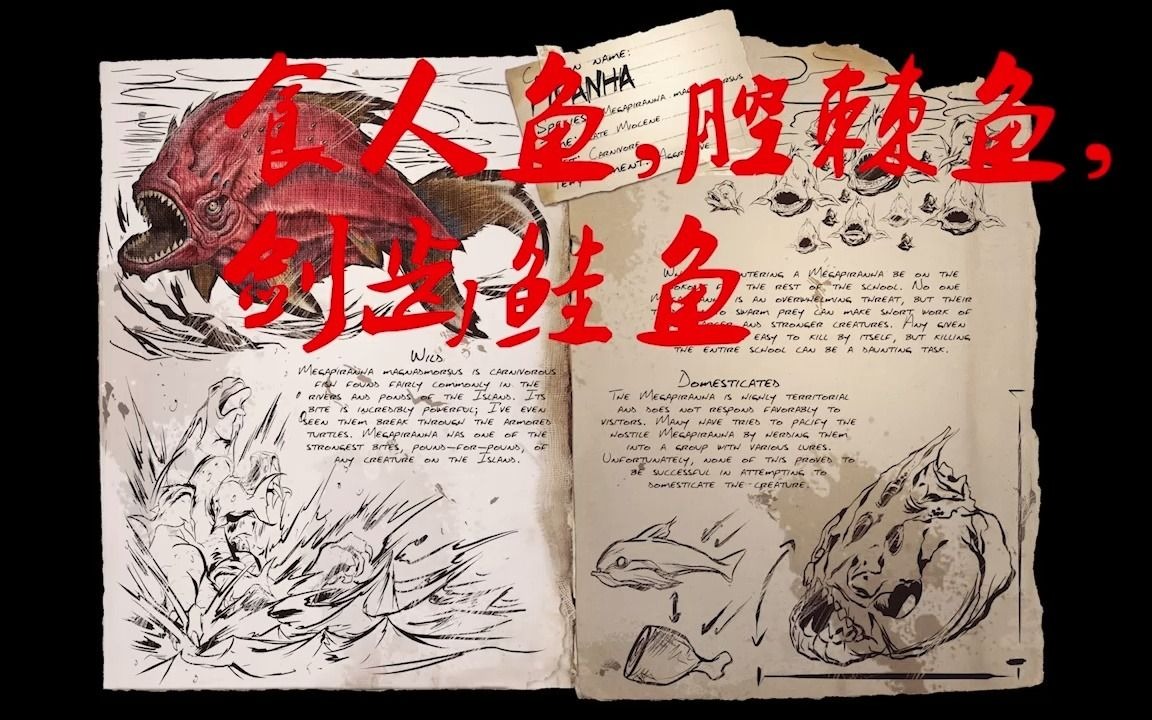 食人鱼,腔棘鱼,
剑齿鲑鱼
NAME:
Megapiranha
Late Miocene
Carnivore
Wild
Megapiranha magnadmorsus is carnivorous
fish found fairly commonly in the
rivers and ponds of the Island. Its
bite is incredibly powerful; I've even
seen them break through the armored
turtles. Megapiranha has one of the
strongest bites, pound-for-pound, of
any creature on the Island.
a Megapiranha be on the
the rest of the school. No one
is an overwhelming threat, but their
swarm prey can make short work of
and stronger creatures. Any given
easy to kill by itself, but killing
the entire school can be a daunting task.
Domesticated
The Megapiranha is highly territorial
and does not respond favorably to
visitors. Many have tried to pacify the
hostile Megapiranha by herding them
into a group with various lures.
Unfortunately, none of this proved to
be successful in attempting to
domesticate the creature.